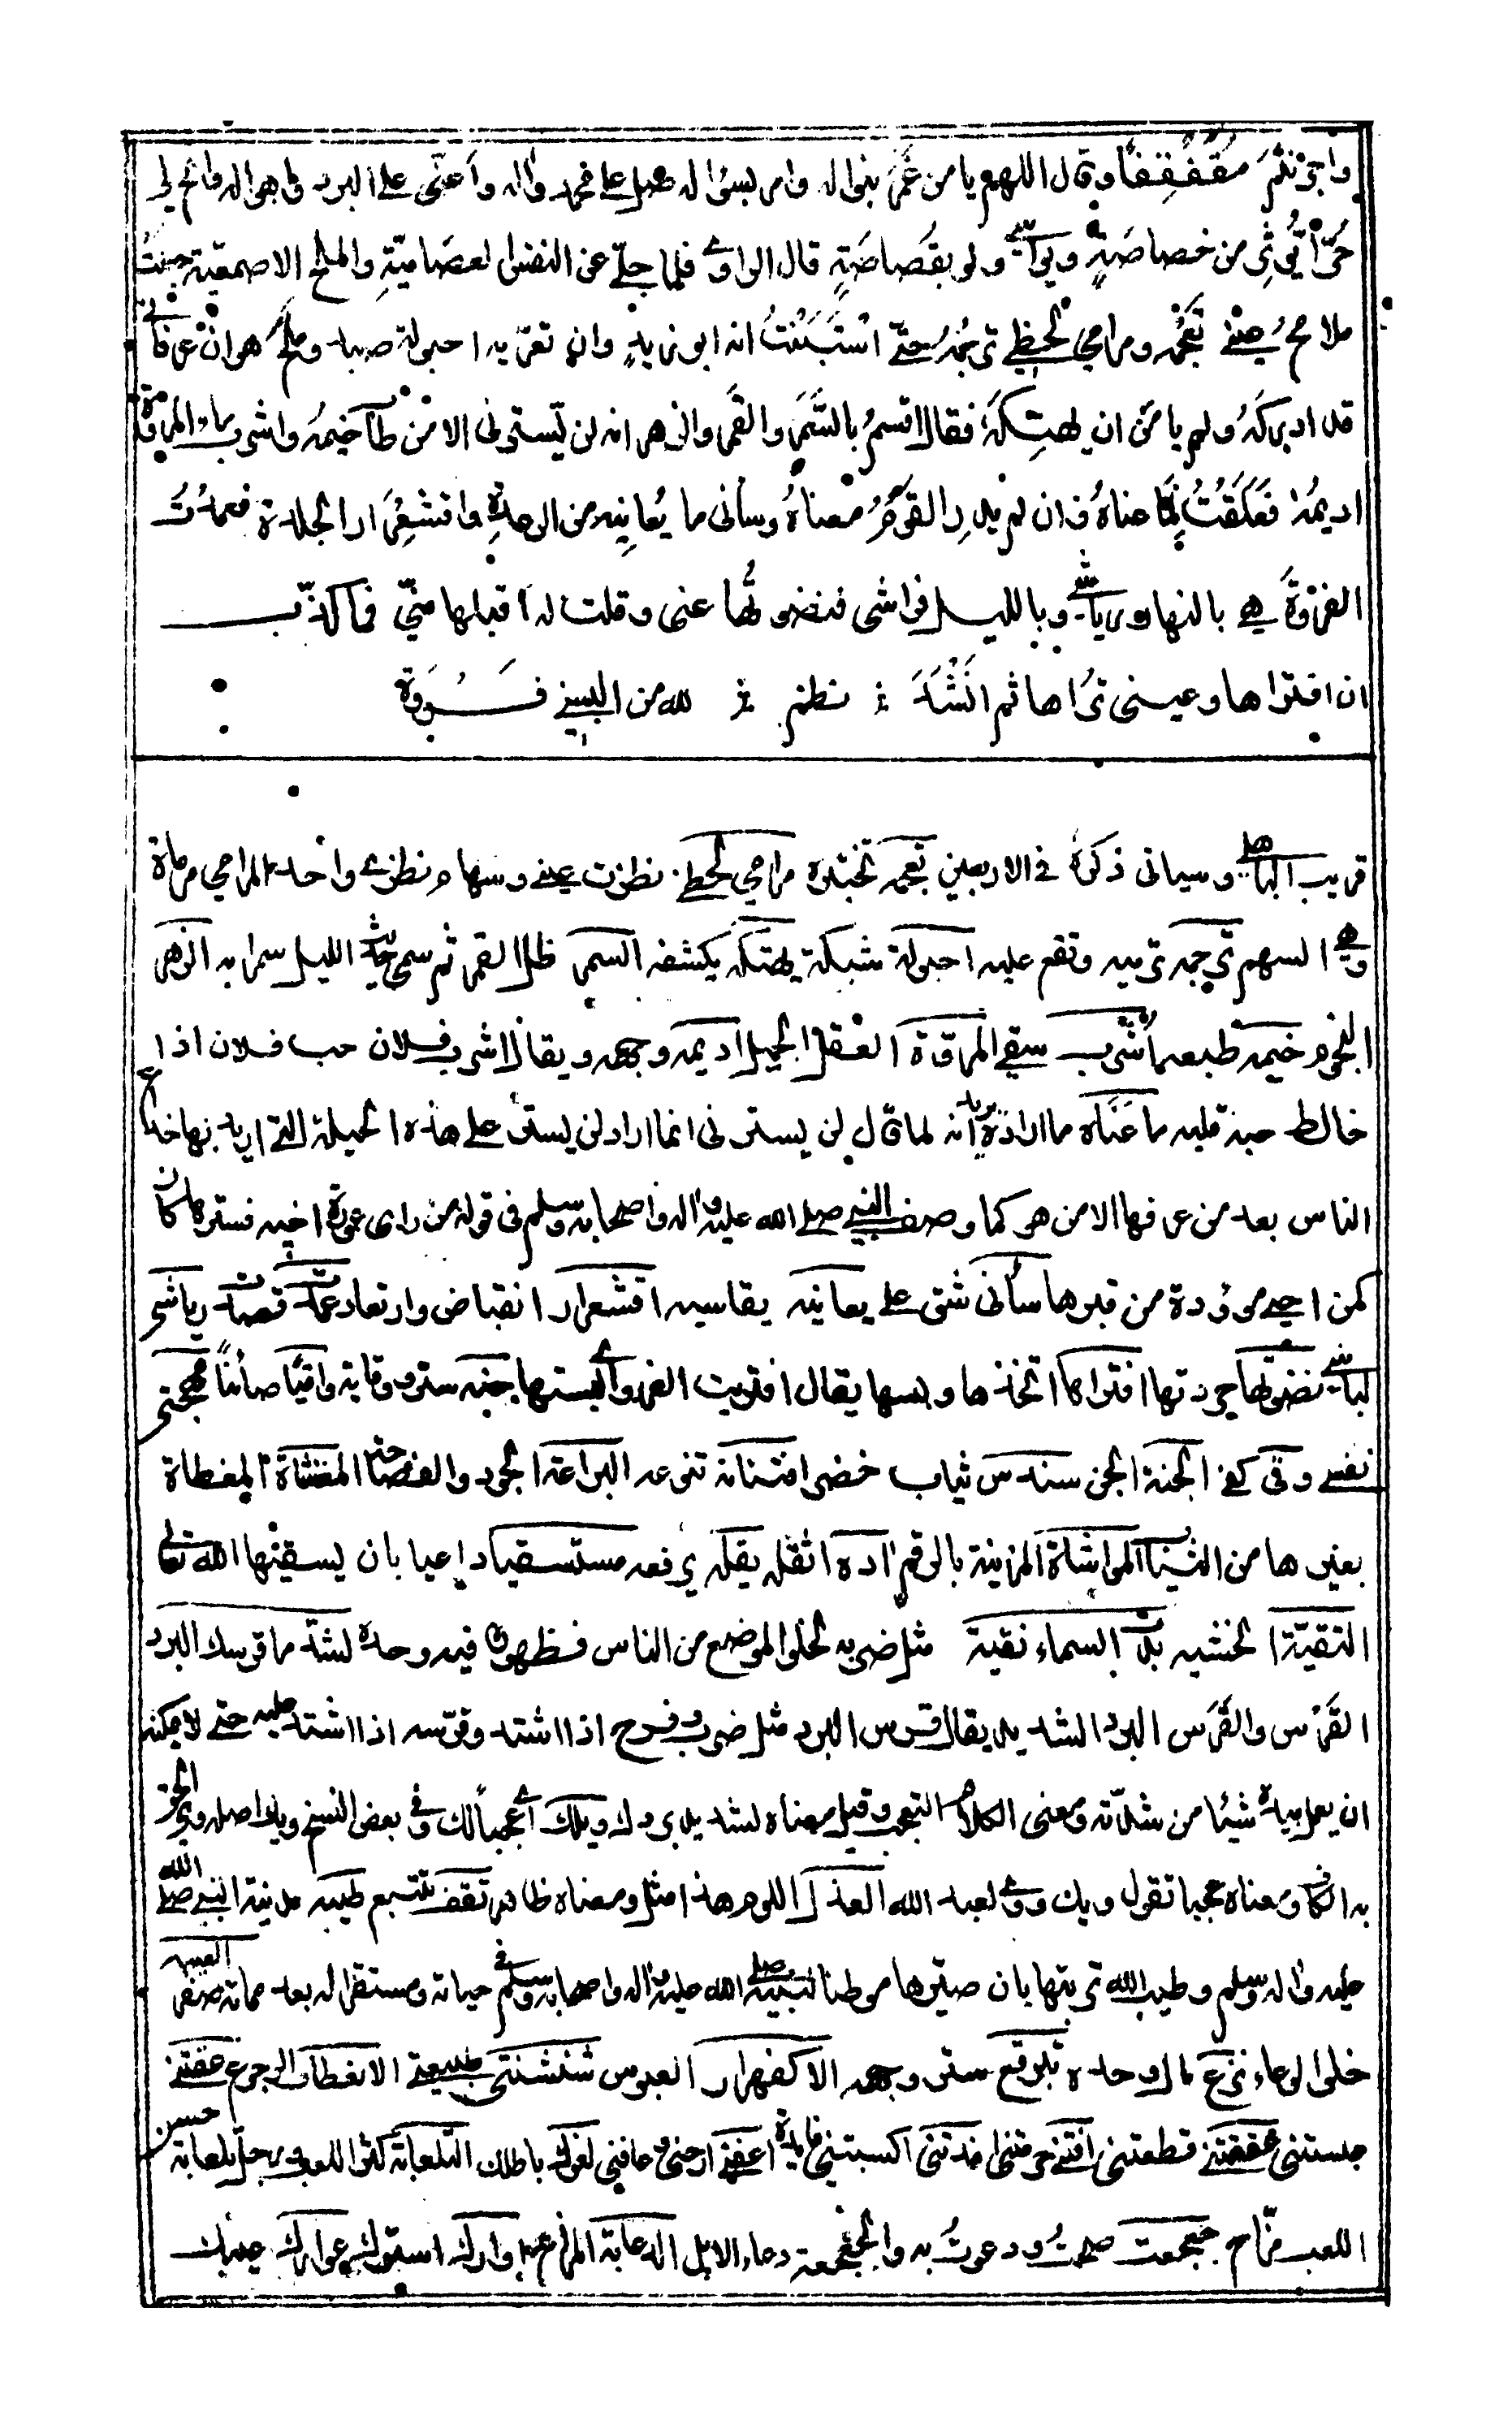 واجرنثم مقفقفا وقال اللهم يا من غمر بنواله وامر بسؤاله صل على محمد واله واعني على البرد واهواله واتح لي
حرا يؤثر من خصاصة ويواسي ولو بقصاصة قال الراوي فلما جلى عن النفس العصامية والملح الاصمعية جعلت
ملامح عيني تعجمه ومرامي لحظي ترجمه حتى استبنت انه ابو زيد وان تعريه احبولة صيد ولمح هو ان عرفاني
قد ادركه ولم يامن ان يهتكه فقال اقسم بالسمر والقمر والزهر انه لن يسترني الا من طاب خيمه واشرب ماء المروة
اديمه فعلقت ما عناه وان لم يدر القوم معناه وساءني ما يعانيه من الرعدة واقشعرار الجلدة فعمدت
الفروة هي بالنهار رياشي وبالليل فراشي فنضوتها عني وقلت له اقبلها مني فما كذب
ان افتراها وعيني تراها ثم انشد نظم لله من البسني فروة
قريب الباهلي وسياتي ذكره في الاربعين تعجمه تختبره مرامي لحظي نظرت عيني وسهام نظري واحد المرامي مرماة
وهي السهم ترجمه ترميه وتقع عليه احبولة شبكة يهتكه يكشفه السمر ظل القمر ثم سمي حديث الليل سمرا به الزهر
النجوم خيمه طبعه اشرب سقي المروة العقل الجميل اديمه وجهه ويقال اشرب فلان حب فلان اذا
خالط حبه قلبه ما عناه ما اراده انه لما قال لن يسترني انما اراد لن يستر على هذه الحيلة التي اريد بها خداع
الناس بعد من عرفها الا من هو كما وصف النبي صلى الله عليه واله واصحابه وسلم في قوله من راى عورة اخيه فسترها كان
كمن احيى موؤدة من قبرها ساءني شق علي يعانيه يقاسيه اقشعرار انقباض وارتعاد عمدت قصدت رياشي
لباسي نضوتها جردتها افتراها اتخذها ولبسها يقال افتريت الفرو اي لبستها جنة سترة وقاية واقيا صائنا مهجتي
نفسي وقي كفي الجنة الجن سندس ثياب خضر افتنانه تنوعه البراعة الجود والفصاحة المغشاة المغطاة
بغيرها من الثياب الموشاة المزينة بالرقم اده اثقله يقله يرفعه مستسقيا داعيا بان يسقيها الله تعالى
التقية الخشية بدت السماء نقية مثل ضربه لخلو الموضع من الناس فظهر فيه وحده لشد ما قرسك البرد
القرس والقرس البرد الشديد يقال قرس البرد مثل ضرب وفرح اذا اشتد وقرسه اذا اشتد عليه حتى لا يمكنه
ان يعمل بيده شيئا من شدته ومعنى الكلام التعجب وقيل معناه لشديد بردك ويلك اي عجبا لك وفي بعض النسخ ويك اصله وي الحق
به الكاف ومعناه عجبا تقول ويك ووي لعبد الله العذل اللوم هذا مثل ومعناه ظاهر تقف تتبع طيبه مدينة النبي صلى الله
عليه واله وسلم وطيب الله تربتها بان صيرها موطنا لنبيه صلى الله عليه واله واصحابه وسلم في حياته ومستقرا له بعد مماته صفر العيبه
خلو الوعاء نزع مال وحده تبرقع ستر وجهه الاكفهرار العبوس شنشنتي طبيعتي الانعطاف الرجوع عقتني
حبستني عققتني قطعتني افتني حرمتني افدتني اكسبتني فايدة اعفني ارحني وعافني لغوك باطلك التلعابة كثير اللعب رجل تلعابة حسن
اللعب مزاح جعجعت صحت ودعوت به والجعجعة دعاء الابل الدعابة المزاح اوارك استرك عوارك عيبك